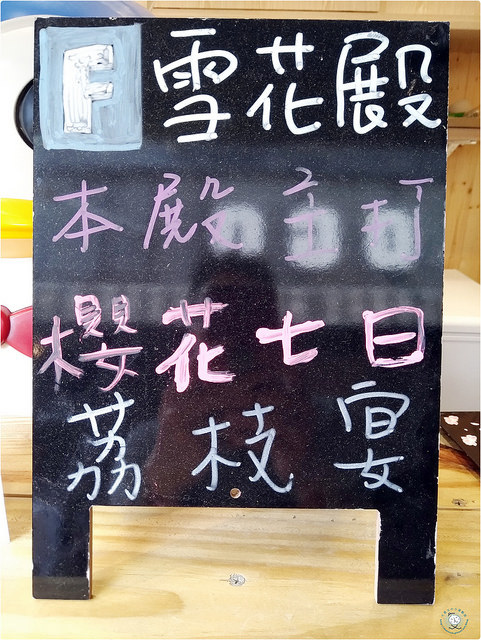 F 雪花殿
本殿主打
櫻花七日
荔枝宴